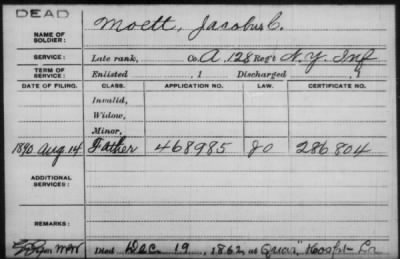 DEAD
NAME OF SOLDIER: Moett, Jacobus C.
SERVICE: Late rank, Co. A, 128 Reg't N.Y. Inf
TERM OF SERVICE: Enlisted , 1 Discharged , 1
DATE OF FILING. CLASS. APPLICATION NO. LAW. CERTIFICATE NO.
Invalid,
Widow,
Minor,
1890 Aug 14 Father 468985 90 286804
ADDITIONAL SERVICES:
REMARKS:
Died Dec 19, 1862, at Hospt- La